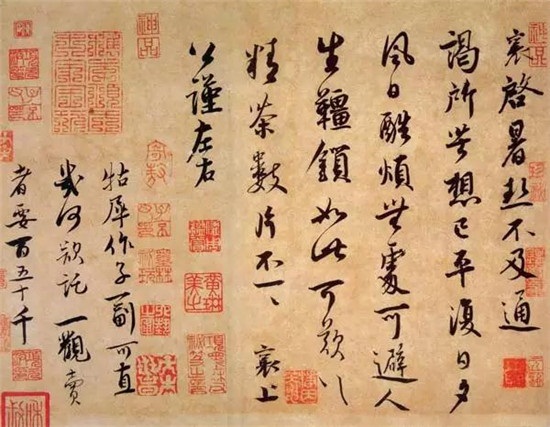 襄啓暑熱不及通
謁所苦想已平復日夕
風日酷煩無處可避人
生韁鎖如此可歎〻
精茶數片不一一 襄上
公謹左右
牯犀作子一副可直
幾何欲託一觀賣
者要百五十千
神品